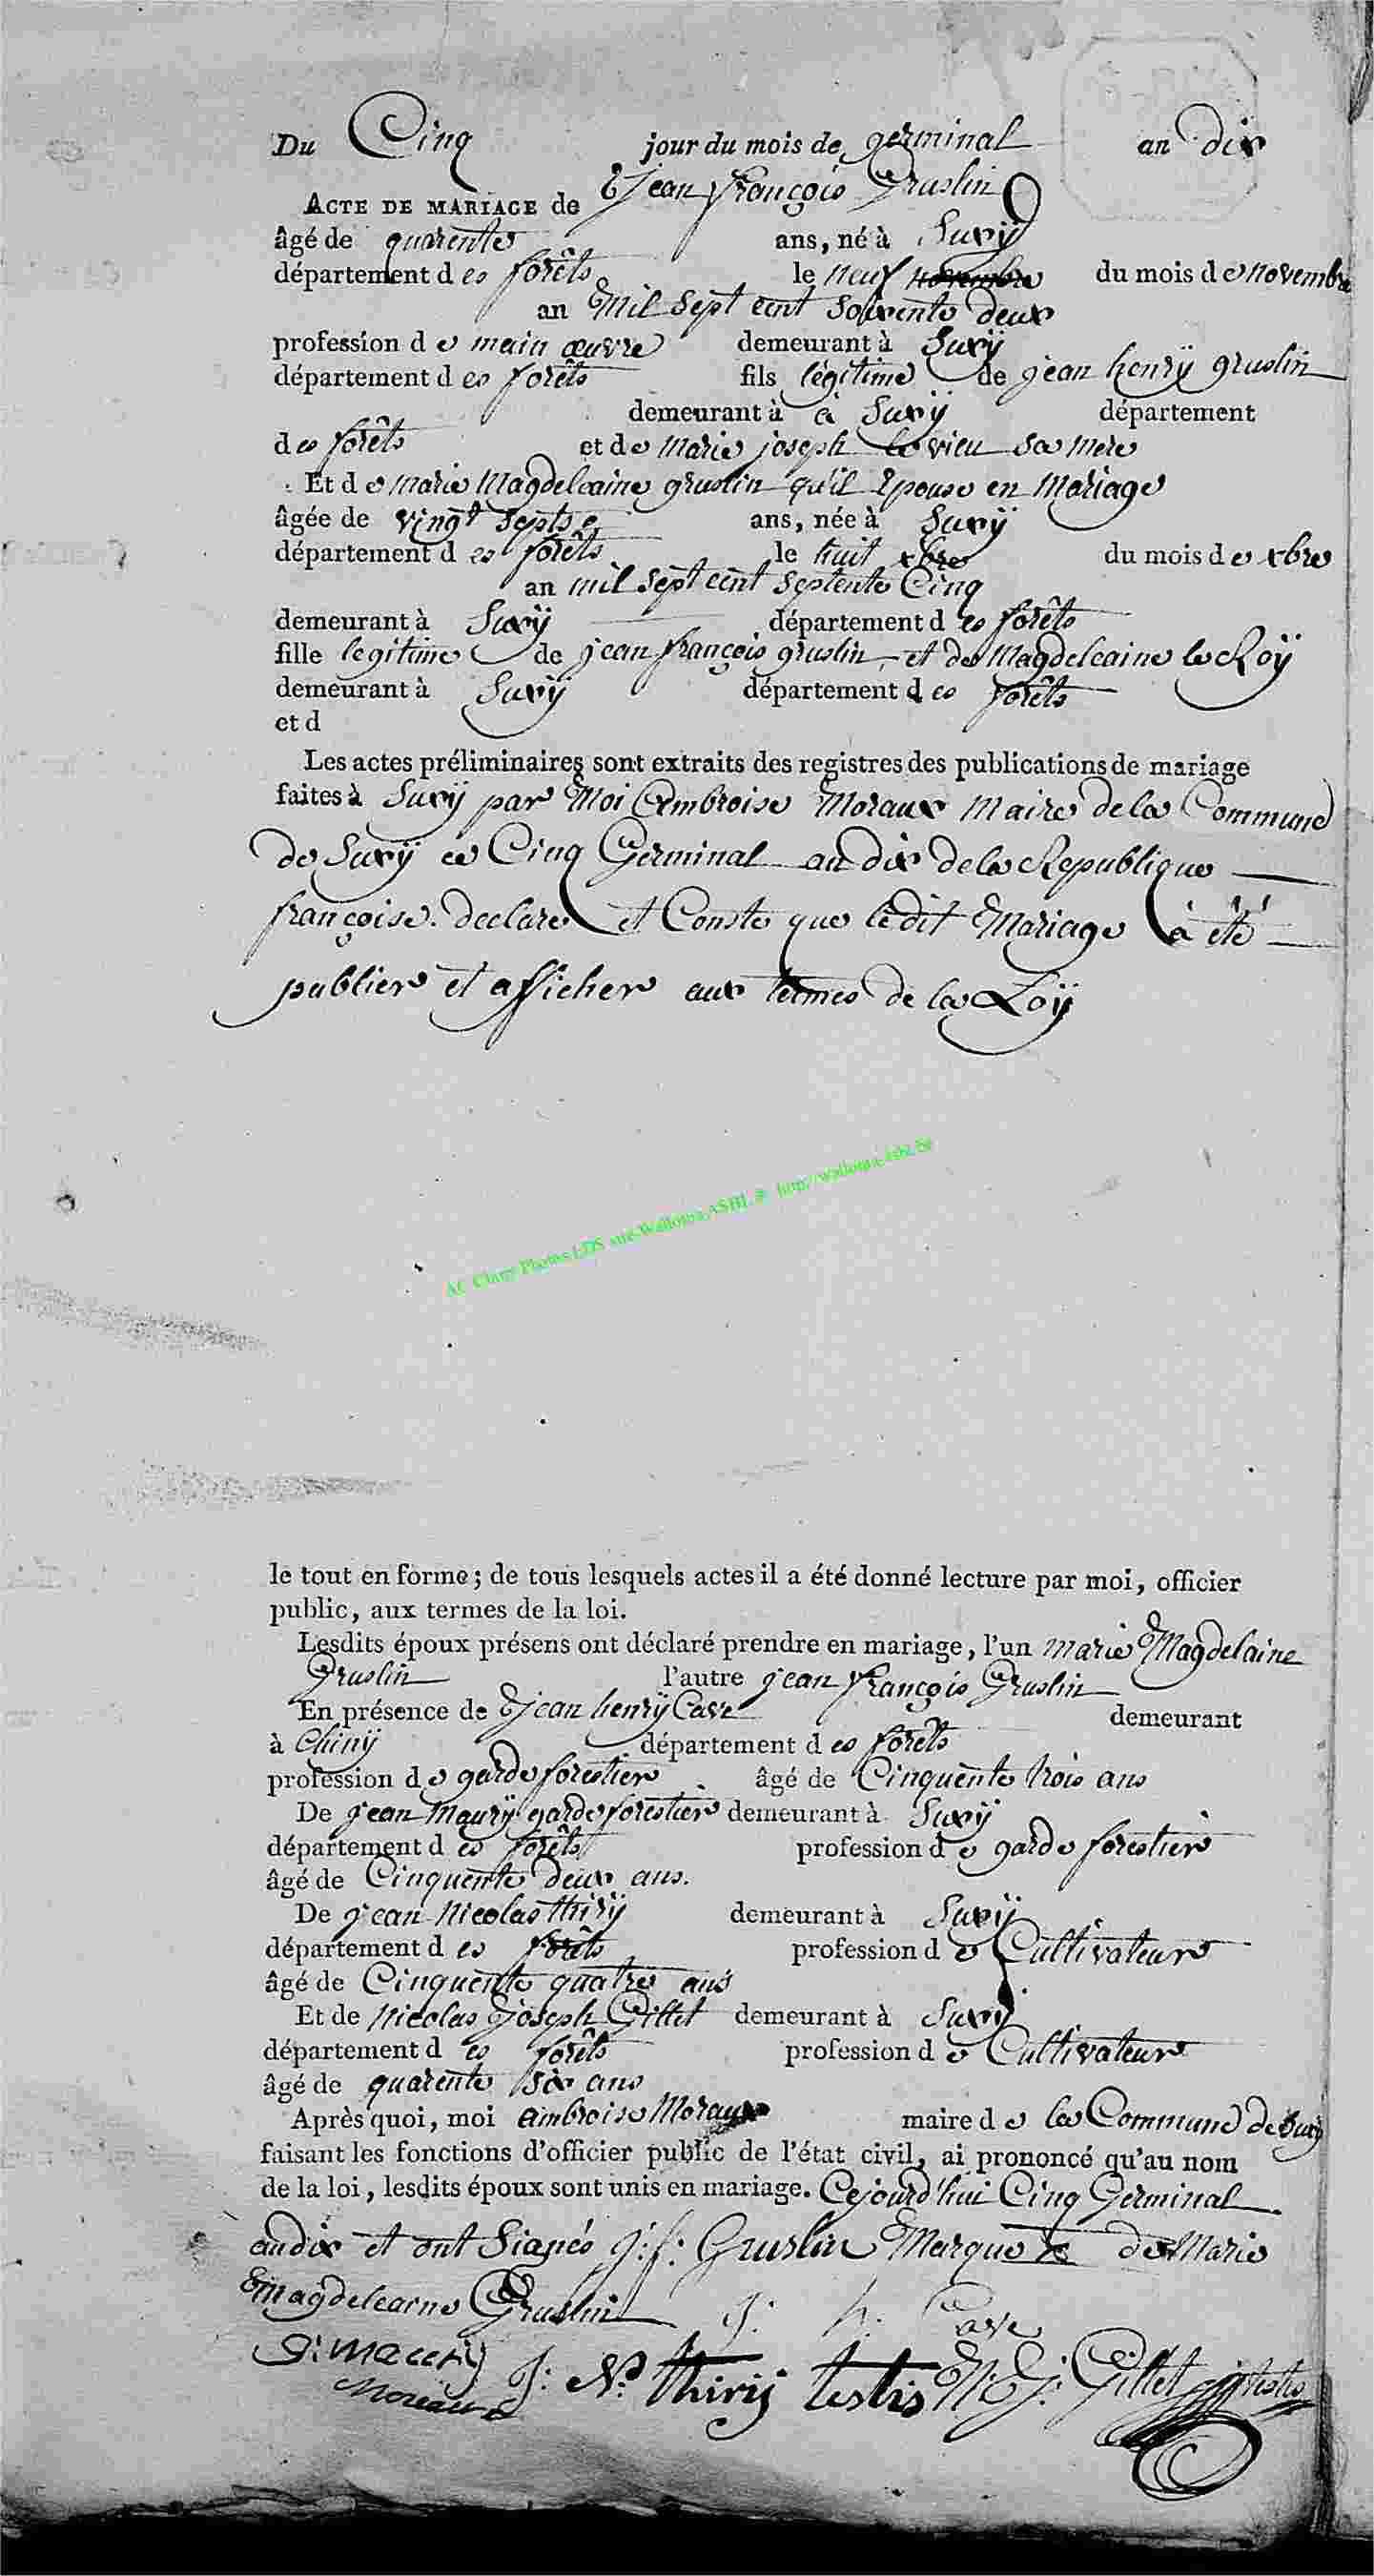 Du Cinq jour du mois de germinal an dix
ACTE DE MARIAGE de Jean françois Gruslin
âgé de quarente ans, né à Suxÿ
département des forêts le neuf novembre du mois de novembre
an Mil sept cent soixente deux
profession de main œuvre demeurant à Suxÿ
département des forêts fils légitime de jean henrÿ gruslin
demeurant à à Suxÿ département
des forêts et de marie joseph le vieu sa mere
Et de marie Magdeleaine gruslin qu'il Epouse en Mariage
âgée de vingt septs ans, née à Suxÿ
département des forêts le huit xbre du mois de xbre
an mil sept cent septente Cinq
demeurant à Suxÿ département des forêts
fille legitime de jean françois gruslin et de Magdeleaine le Roÿ
demeurant à Suxÿ département des forêts
et d
Les actes préliminaires sont extraits des registres des publications de mariage
faites à Suxÿ par Moi Ambroise Moraux Maire de la Commune
de Suxÿ ce Cinq Germinal an dix de la Republique
françoise. declare et Conste que ledit Mariage à été
publier et afficher aux termes de la Loÿ
AC Chiny Photos LDS sur Wallonia ASBL @ http://wallonia-asbl.be
le tout en forme; de tous lesquels actes il a été donné lecture par moi, officier
public, aux termes de la loi.
Lesdits époux présens ont déclaré prendre en mariage, l'un marie Magdelaine
Gruslin l'autre jean françois Gruslin
En présence de Jean henrÿ Cave demeurant
à Chinÿ département des forêts
profession de garde forestier âgé de Cinquente trois ans
De jean Maurÿ garde forestier demeurant à Suxÿ
département des forêts profession de garde forestier
âgé de Cinquente deux ans.
De jean Nicolas thirÿ demeurant à Suxÿ
département des forêts profession de Cultivateur
âgé de Cinquente quatre ans
Et de Nicolas Joseph Gillet demeurant à Suxÿ
département des forêts profession de Cultivateur
âgé de quarente six ans
Après quoi, moi ambroise Moraux maire de la Commune de Suxÿ
faisant les fonctions d'officier public de l'état civil, ai prononcé qu'au nom
de la loi, lesdits époux sont unis en mariage. Cejourd'hui Cinq Germinal
an dix et ont Signés j: f: Gruslin Marque X de Marie
Magdeleaine Gruslin J: h: Cave
J: maurÿ J: N: thirij testis N: J: Gillet testis
Moraux